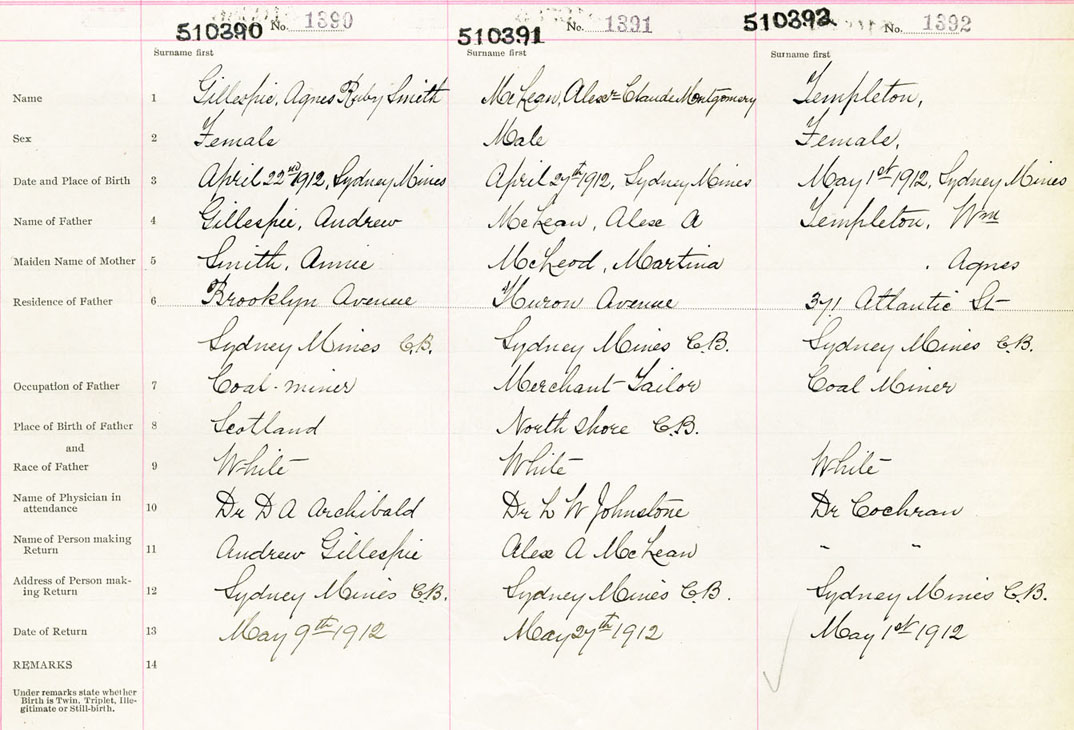 510390 No. 1390 510391 No. 1391 510392 No. 1392
Surname first Surname first Surname first
Name 1 Gillespie, Agnes Ruby Smith McLean, Alexr Claude Montgomery Templeton,
Sex 2 Female Male Female,
Date and Place of Birth 3 April 22nd 1912, Sydney Mines April 27th 1912, Sydney Mines May 1st 1912, Sydney Mines
Name of Father 4 Gillespie, Andrew McLean, Alex A Templeton, Wm
Maiden Name of Mother 5 Smith, Annie McLeod, Martina . Agnes
Residence of Father 6 Brooklyn Avenue Huron Avenue 371 Atlantic St
Sydney Mines C.B. Sydney Mines C.B. Sydney Mines C.B.
Occupation of Father 7 Coal-miner Merchant-Tailor Coal Miner
Place of Birth of Father 8 Scotland North Shore C.B.
and
Race of Father 9 White White White
Name of Physician in
attendance 10 Dr D A Archibald Dr L W Johnstone Dr Cochran
Name of Person making
Return 11 Andrew Gillespie Alex A McLean " "
Address of Person mak-
ing Return 12 Sydney Mines C.B. Sydney Mines C.B. Sydney Mines C.B.
Date of Return 13 May 9th 1912 May 27th 1912 May 1st 1912
REMARKS 14
Under remarks state whether
Birth is Twin, Triplet, Ille-
gitimate or Still-birth.